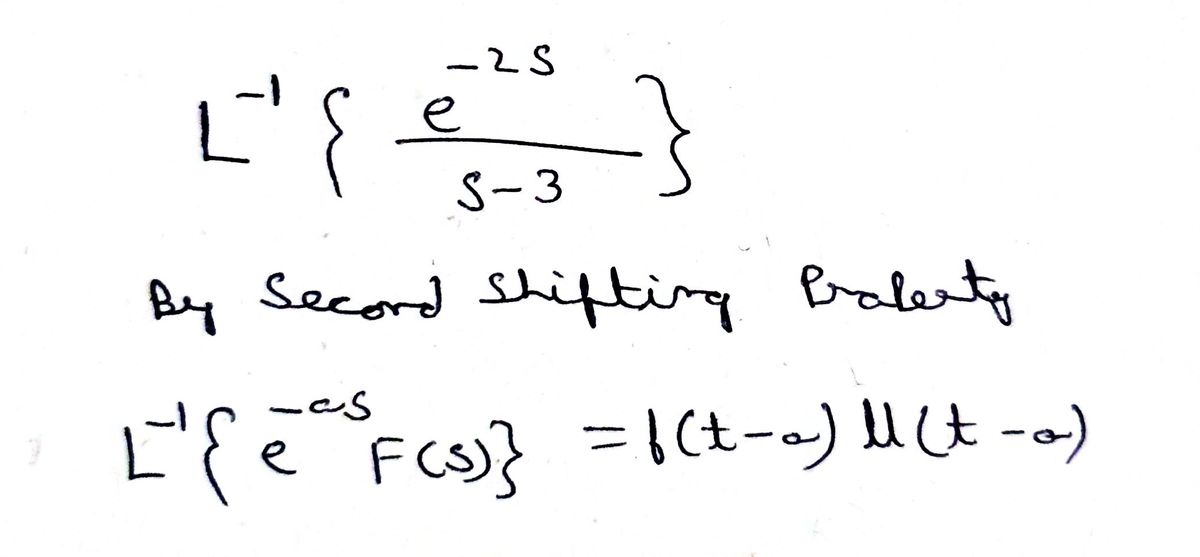 L^{-1} { e^{-2s} / s-3 }
By Second Shifting Property
L^{-1} { e^{-as} F(s) } = f(t-a) u(t-a)